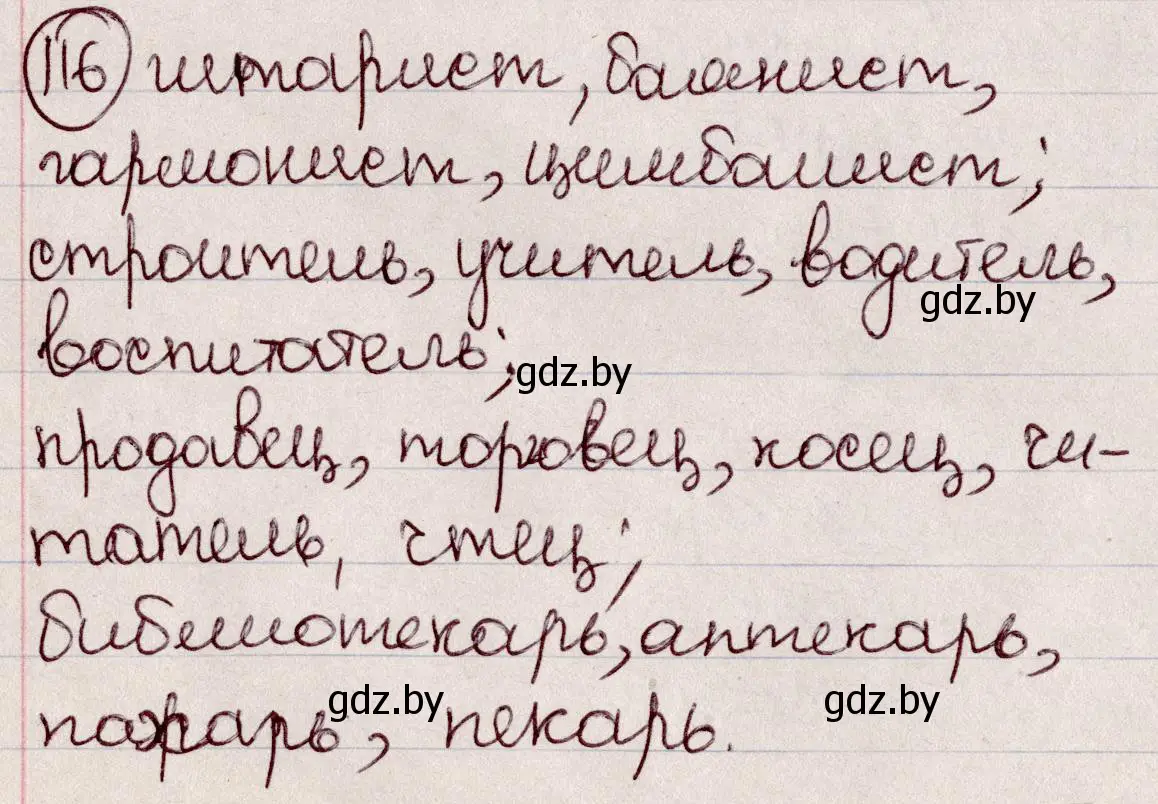 116 гитарист, баянист,
гармонист, цимбалист;
строитель, учитель, водитель,
gdz.by
воспитатель;
gdz.by
продавец, торговец, косец, чи-
татель, чтец;
библиотекарь, аптекарь,
gdz.by gdz.by
пожарь, пекарь.